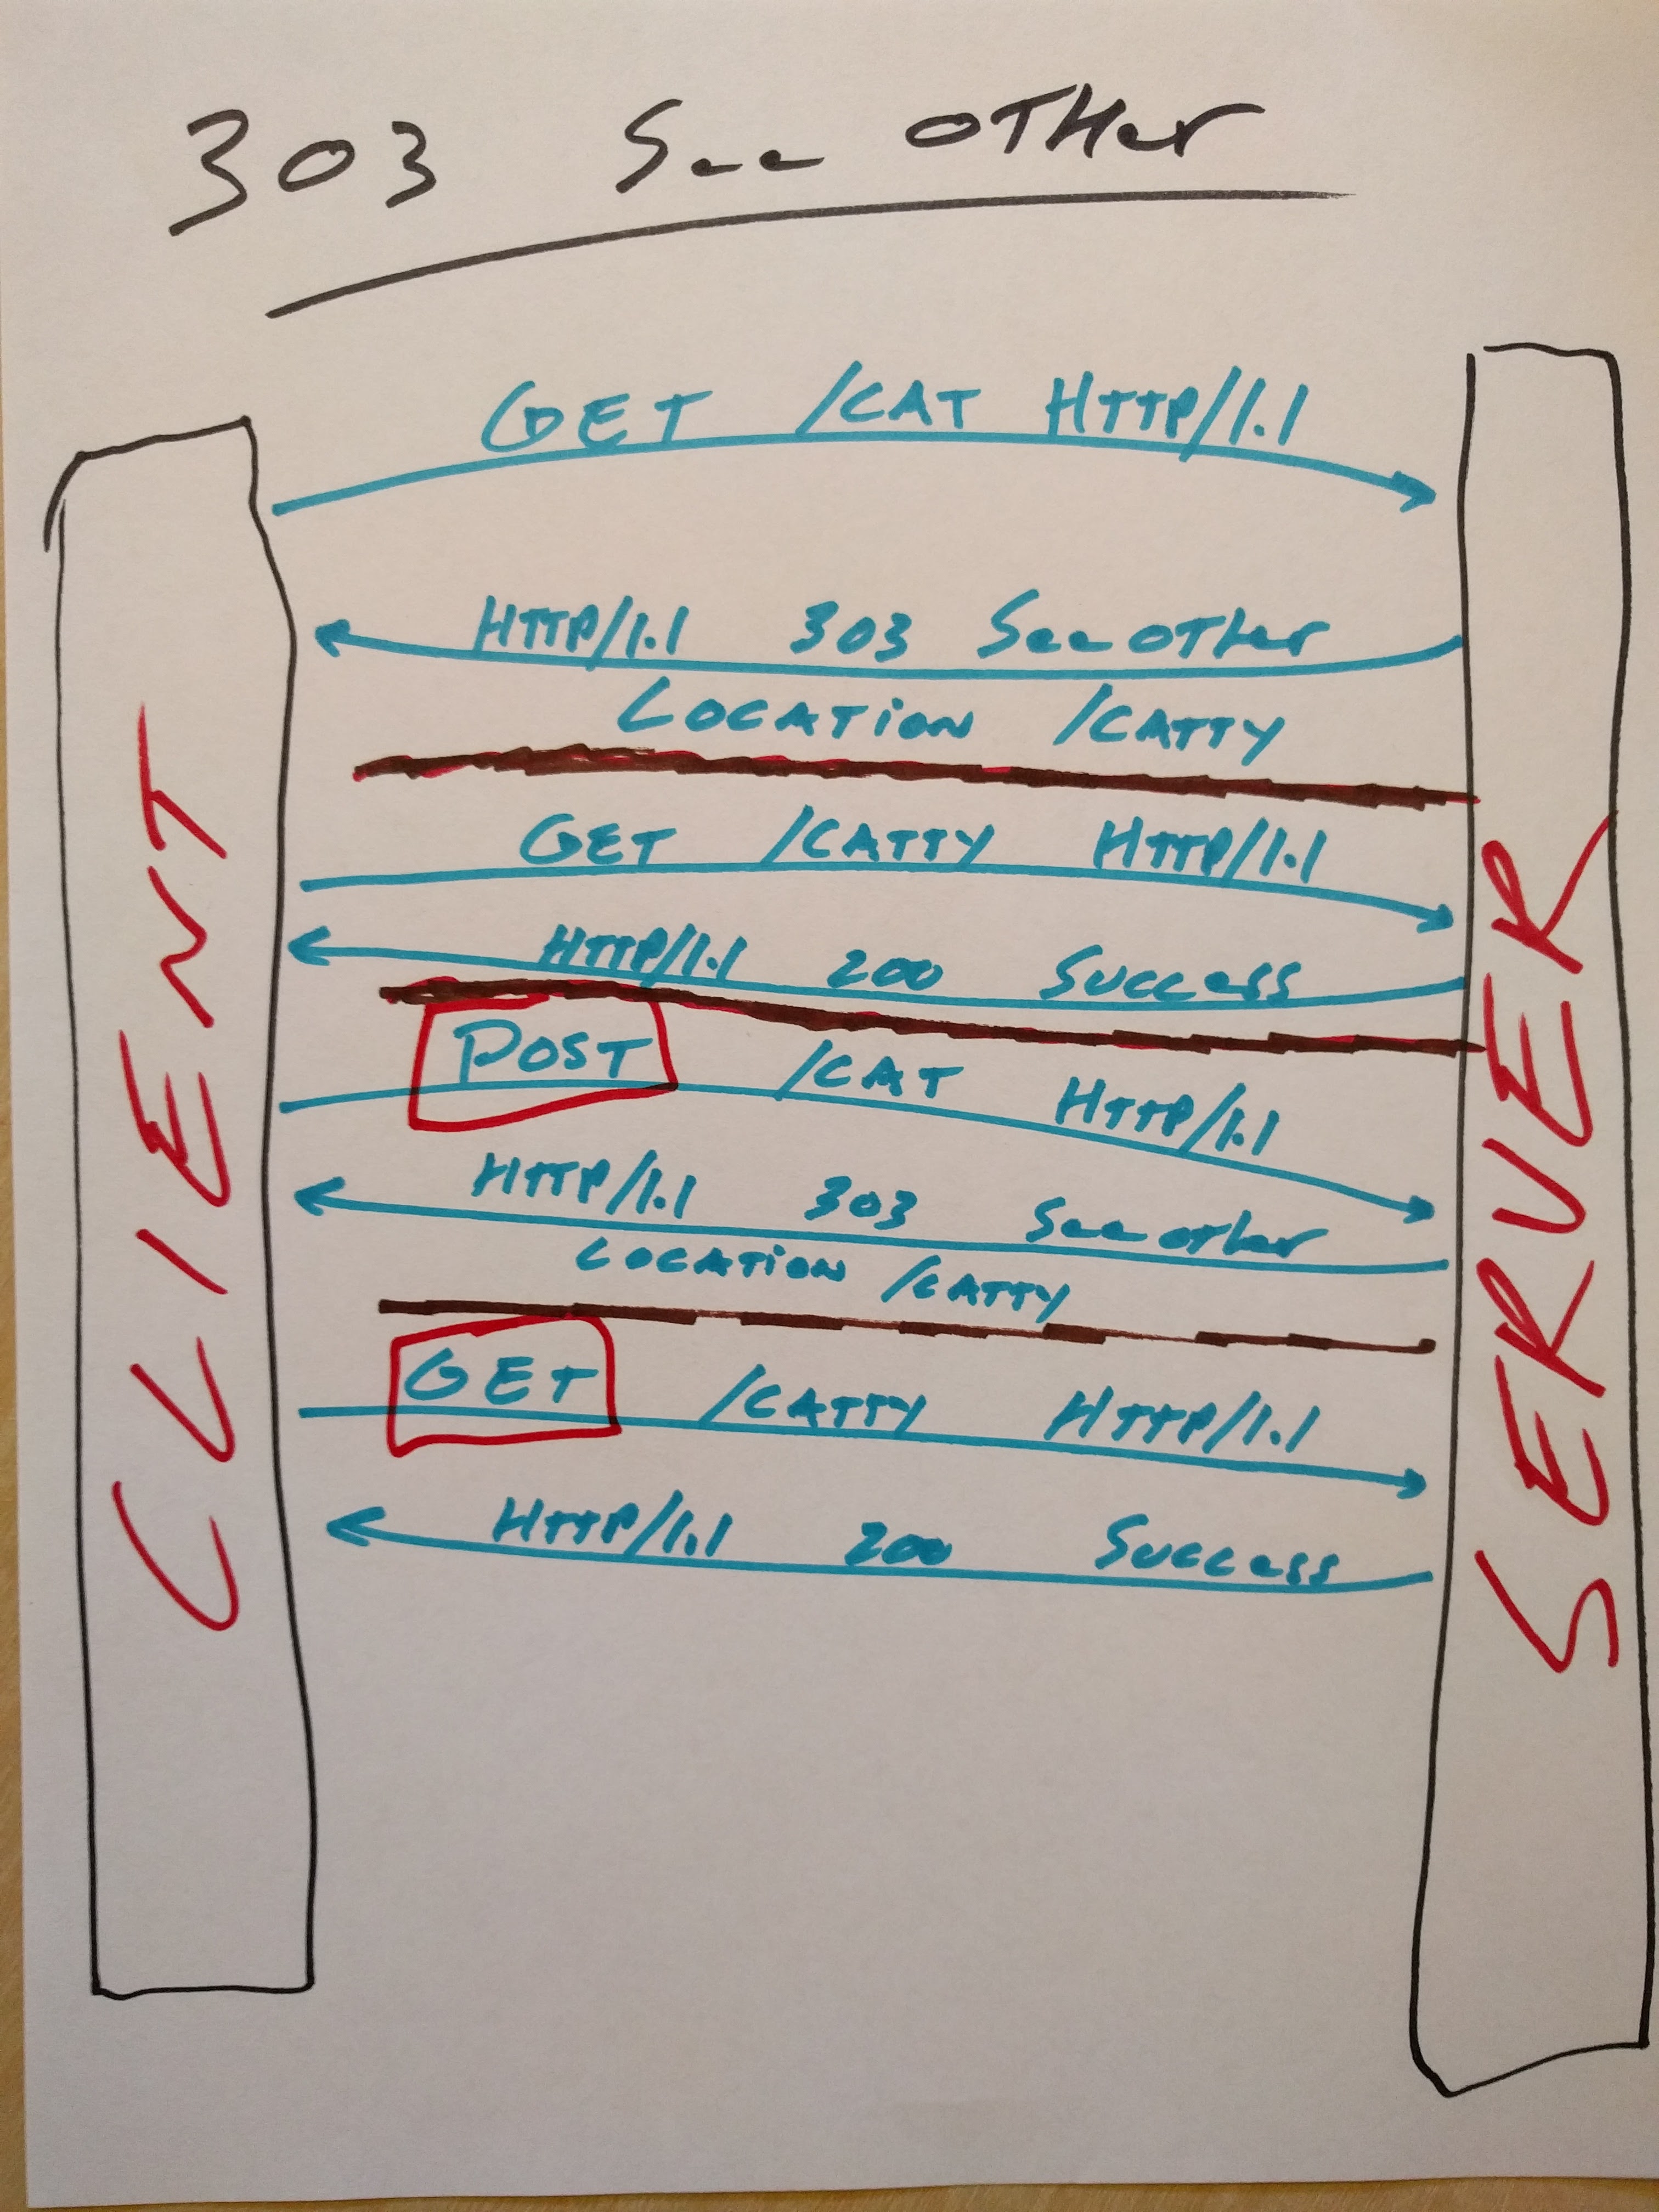 303 See OTHer
GET /CAT HTTP/1.1
HTTP/1.1 303 See OTher
LOCATiON /CATTY
GET /CATTY HTTP/1.1
HTTP/1.1 200 Success
POST /CAT HTTP/1.1
HTTP/1.1 303 See other
LOCATiON /CATTY
GET /CATTY HTTP/1.1
HTTP/1.1 200 Success
CLIENT
SERVER